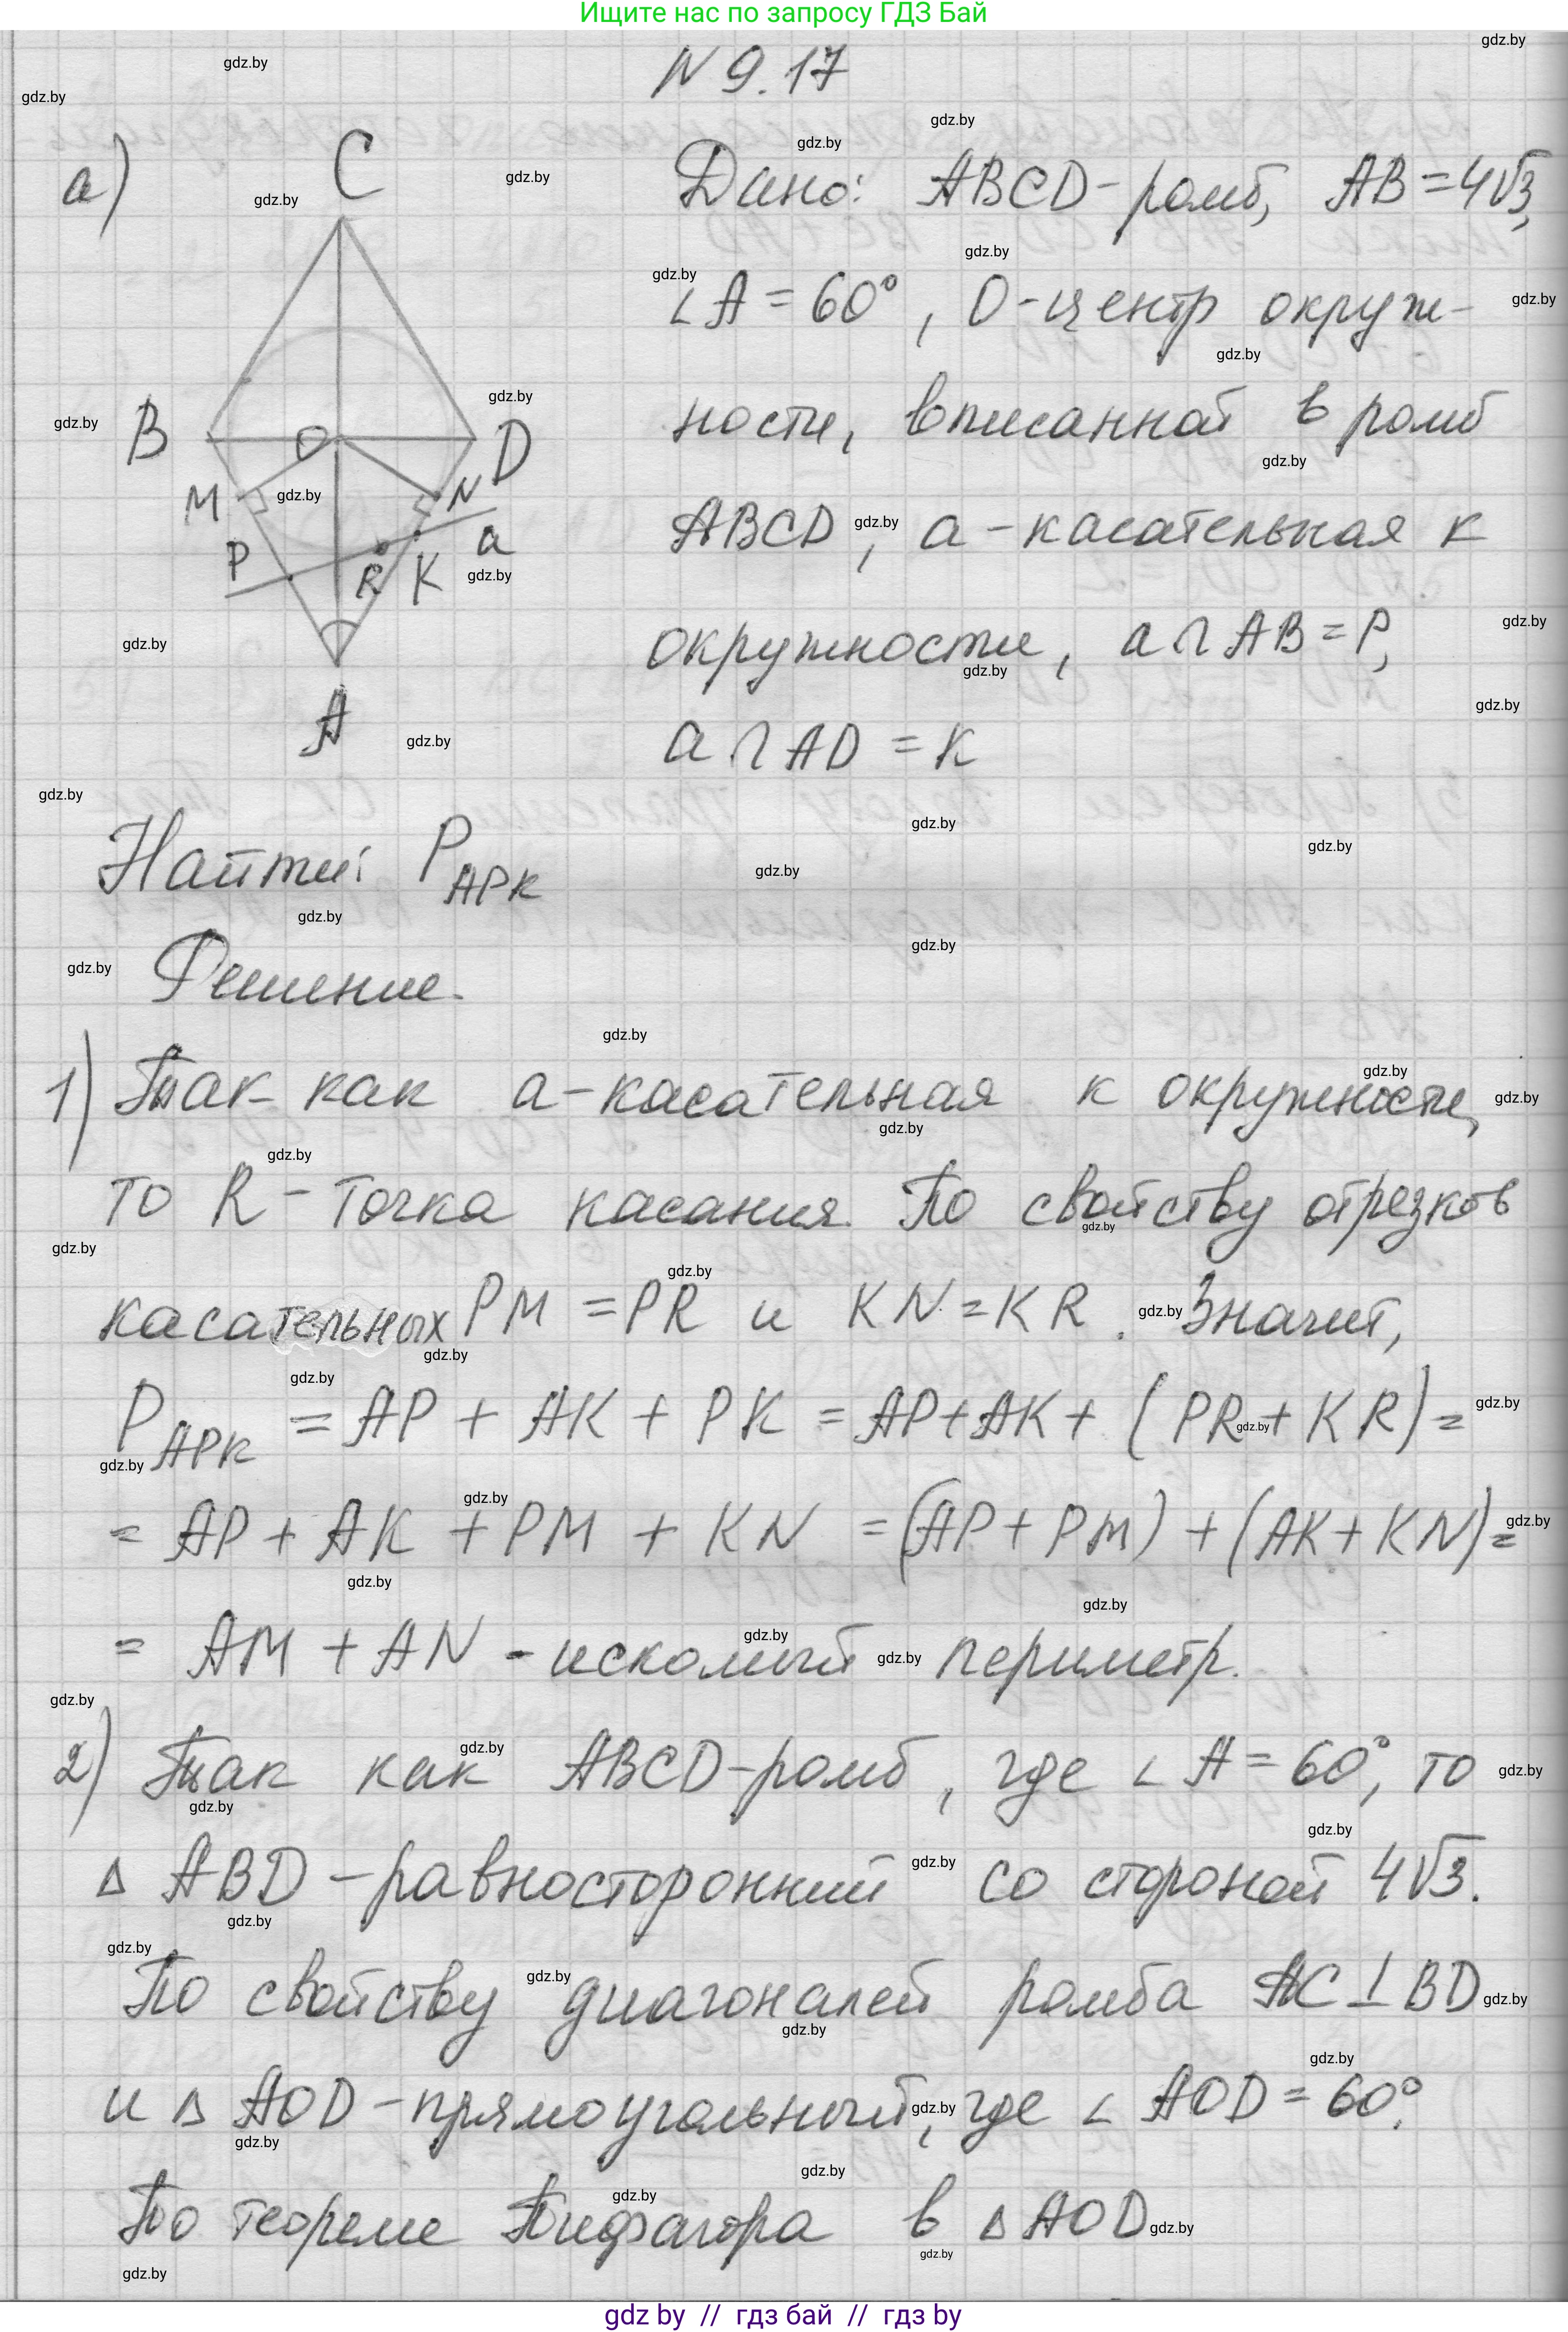 Ищите нас по запросу ГДЗ Бай
N 9.17
а)
C
B
O
D
M
N
P
R
K
a
A
Дано: ABCD-ромб, AB=4√3,
∠A = 60°, O-центр окруж-
ности, вписанной в ромб
ABCD, a-касательная к
окружности, a∩AB=P,
a∩AD = K
Найти: P_APK
Решение.
1) Так как a-касательная к окружности,
то R-точка касания. По свойству отрезков
касательных PM = PR и KN = KR. Значит,
P_APK = AP + AK + PK = AP+AK+ (PR+KR)=
= AP + AK + PM + KN =(AP+PM)+(AK+KN)=
= AM + AN - искомый периметр.
2) Так как ABCD-ромб, где ∠A=60°, то
Δ ABD-равносторонний со стороной 4√3.
По свойству диагоналей ромба AC⊥BD
и Δ AOD-прямоугольный, где ∠AOD=60°.
По теореме Пифагора в ΔAOD
gdz by // гдз бай // гдз by